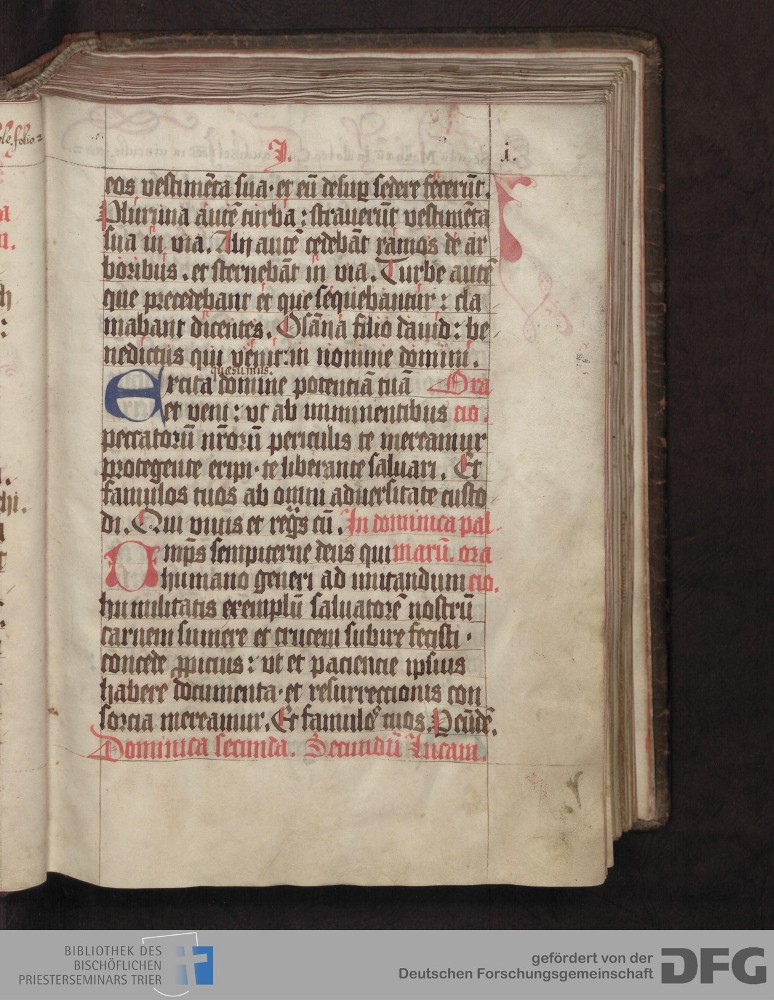 J. i.
eos vestime͂ta sua · et eu͂ desup sedere feceru͂t.
Plurima aute͂ turba : straveru͂t vestime͂ta
sua in via. Alij aute͂ cedeba͂t ramos de ar
boribus . et sterneba͂t in via . Turbe aute͂
que precedebant et que sequebantur : cla
mabant dicentes . Osa͂na filio david : be
nedictus qui venit : in nomine domini .
quæsumus.
Excita domine potencia͂ tua͂ Ora
et veni : vt ab imminentibus cio .
peccatoru͂ nr͂oru͂ periculis te mereamur
protegente eripi · te liberante salvari . Et
famulos tuos ab omni adversitate custo
di . Qui vivis et reg͂s cu͂ . In dominica pal
Omp͂s sempiterne deus qui maru͂ . ora
humano generi ad imitandum cio .
humilitatis exemplu͂ salvatore͂ nostru͂
carnem sumere et crucem subire fecisti ·
concede ꝓpicius : vt et paciencie ipsius
habere documenta · et resurrectionis con
sorcia mereamur . Et famulos tuos .
Dominica secunda . Secundu͂ Lucam .
BIBLIOTHEK DES
BISCHÖFLICHEN
PRIESTERSEMINARS TRIER
gefördert von der
Deutschen Forschungsgemeinschaft DFG